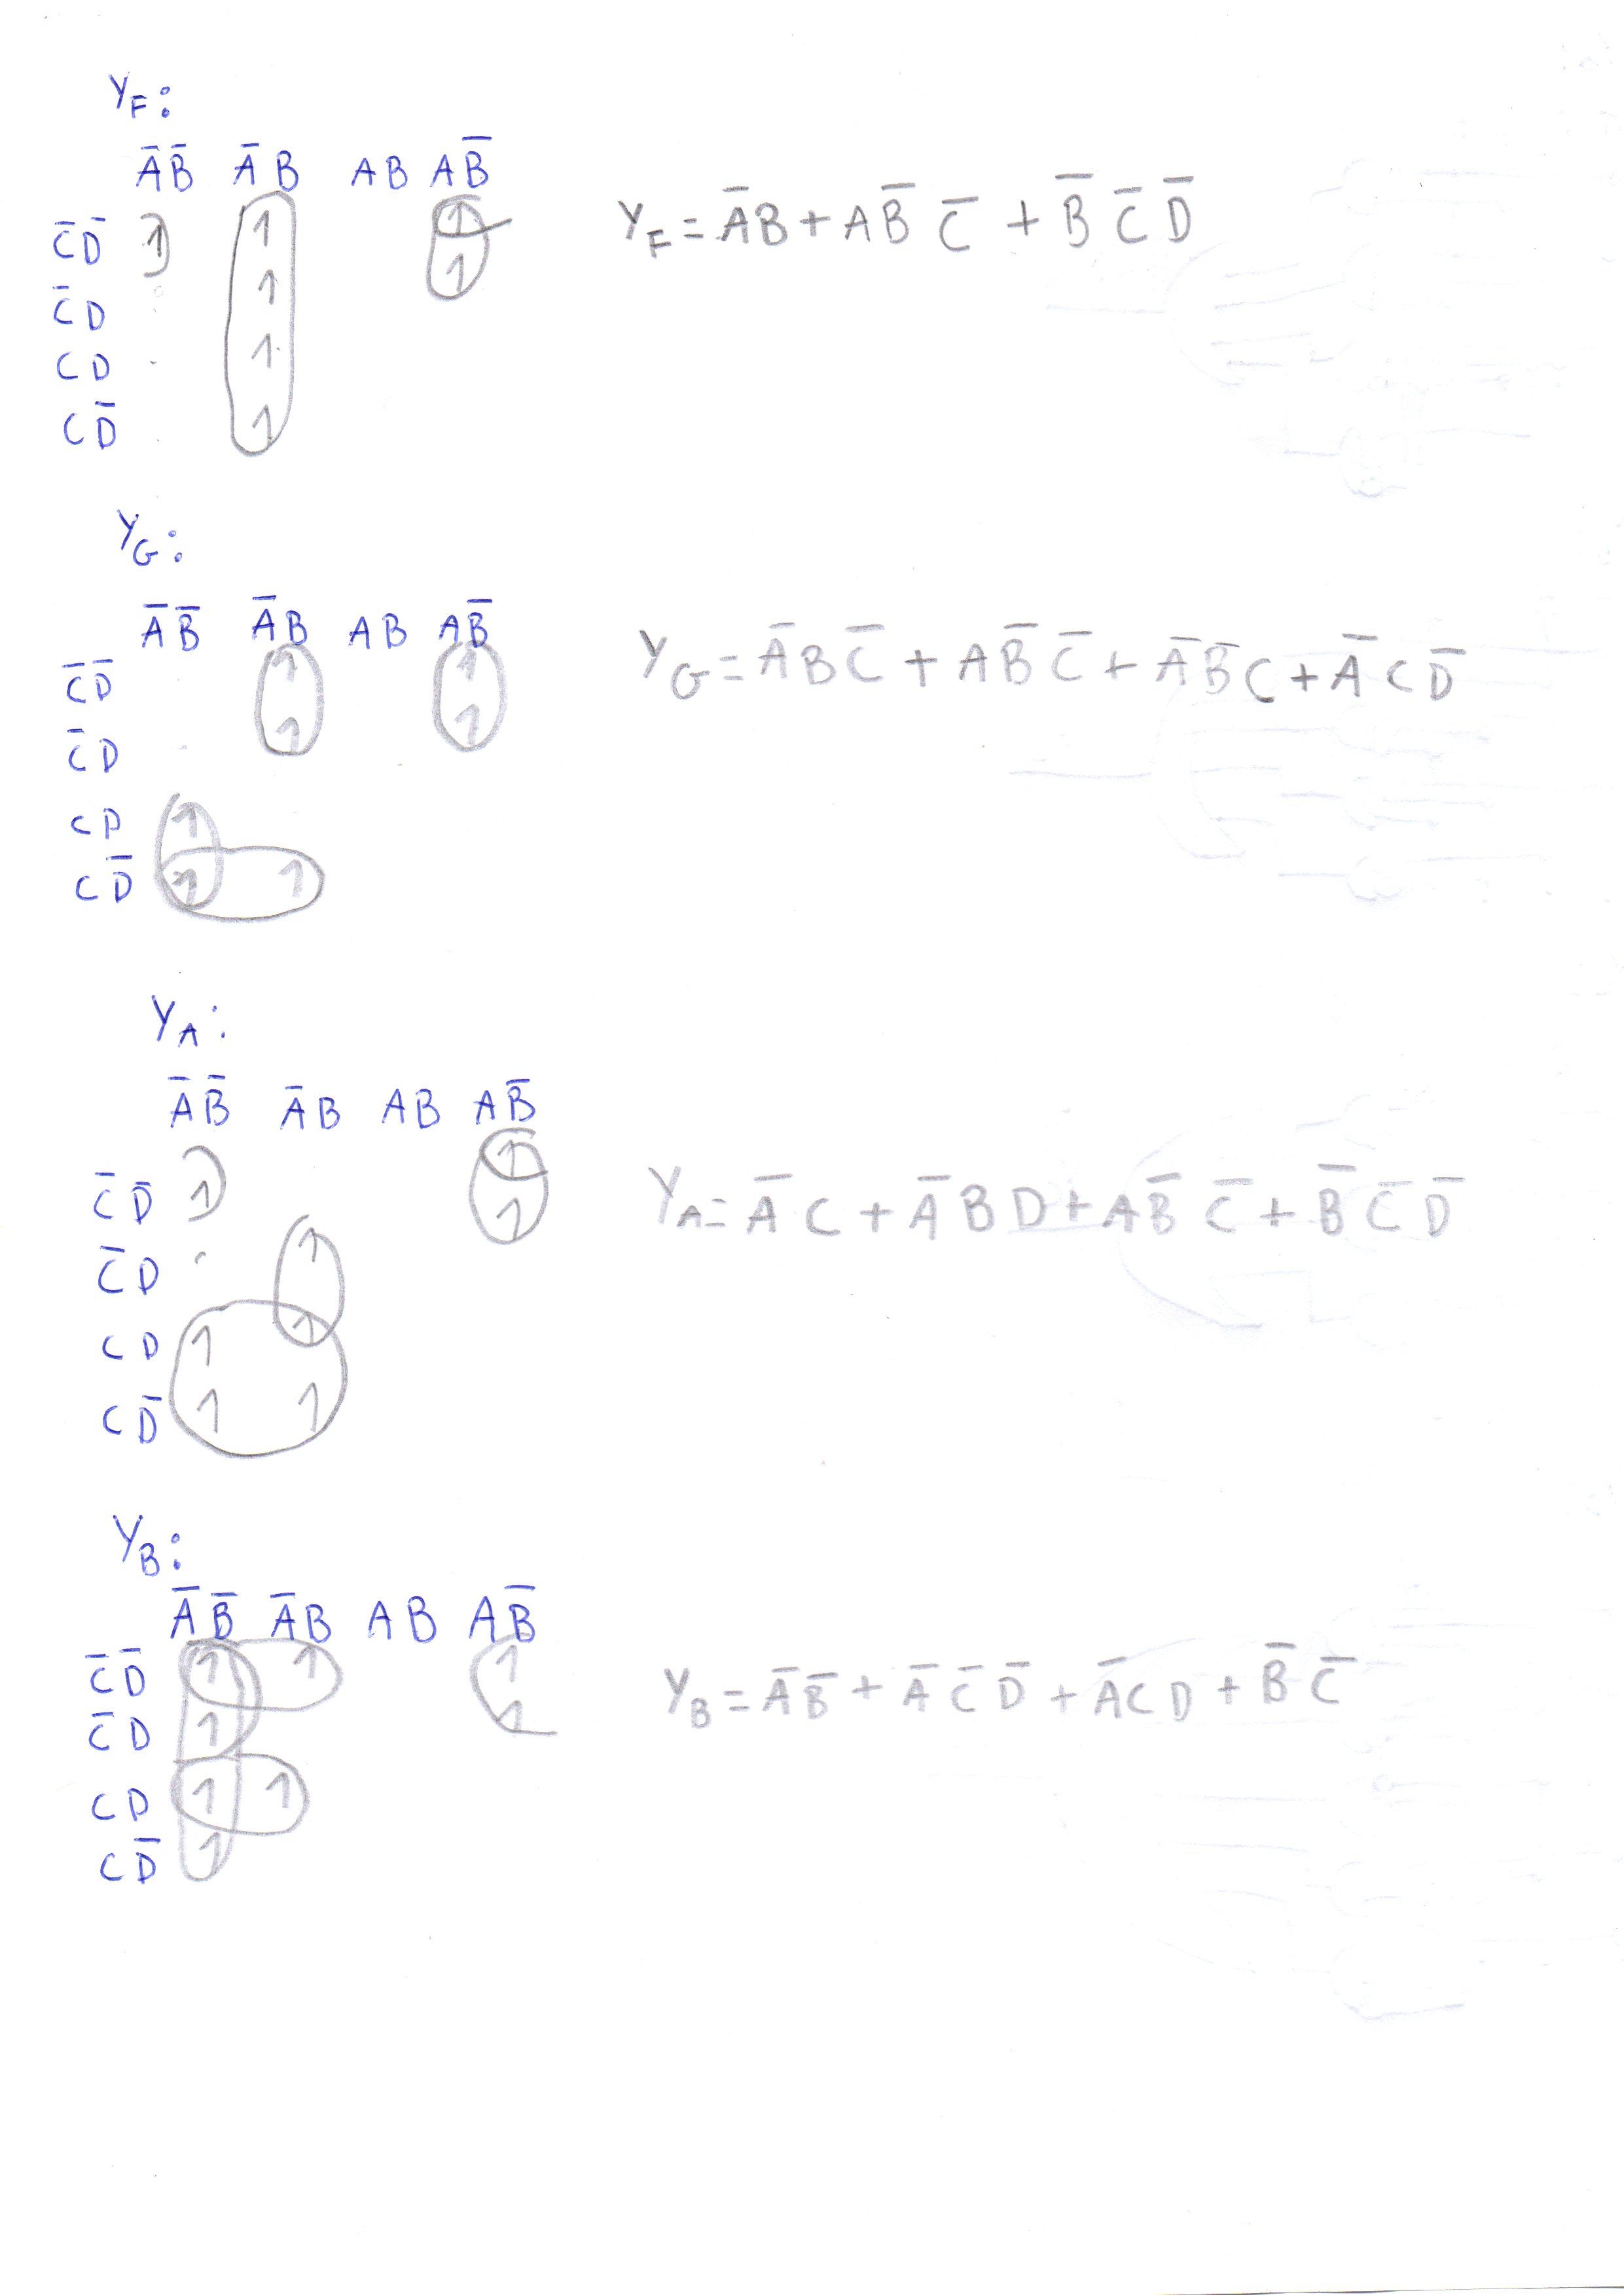 Y_F:
A̅B̅ A̅B AB AB̅
C̅D̅ 1 1 1
C̅D 1 1
CD 1
CD̅ 1
Y_F = A̅B + AB̅C̅ + B̅C̅D̅
Y_G:
A̅B̅ A̅B AB AB̅
C̅D̅ 1 1
C̅D 1 1
CD 1
CD̅ 1 1
Y_G = A̅BC̅ + AB̅C̅ + A̅B̅C + A̅CD̅
Y_A:
A̅B̅ A̅B AB AB̅
C̅D̅ 1 1
C̅D 1 1
CD 1 1
CD̅ 1 1
Y_A = A̅C + A̅BD + AB̅C̅ + B̅C̅D̅
Y_B:
A̅B̅ A̅B AB AB̅
C̅D̅ 1 1 1
C̅D 1 1
CD 1 1
CD̅ 1
Y_B = A̅B̅ + A̅C̅D̅ + A̅CD + B̅C̅